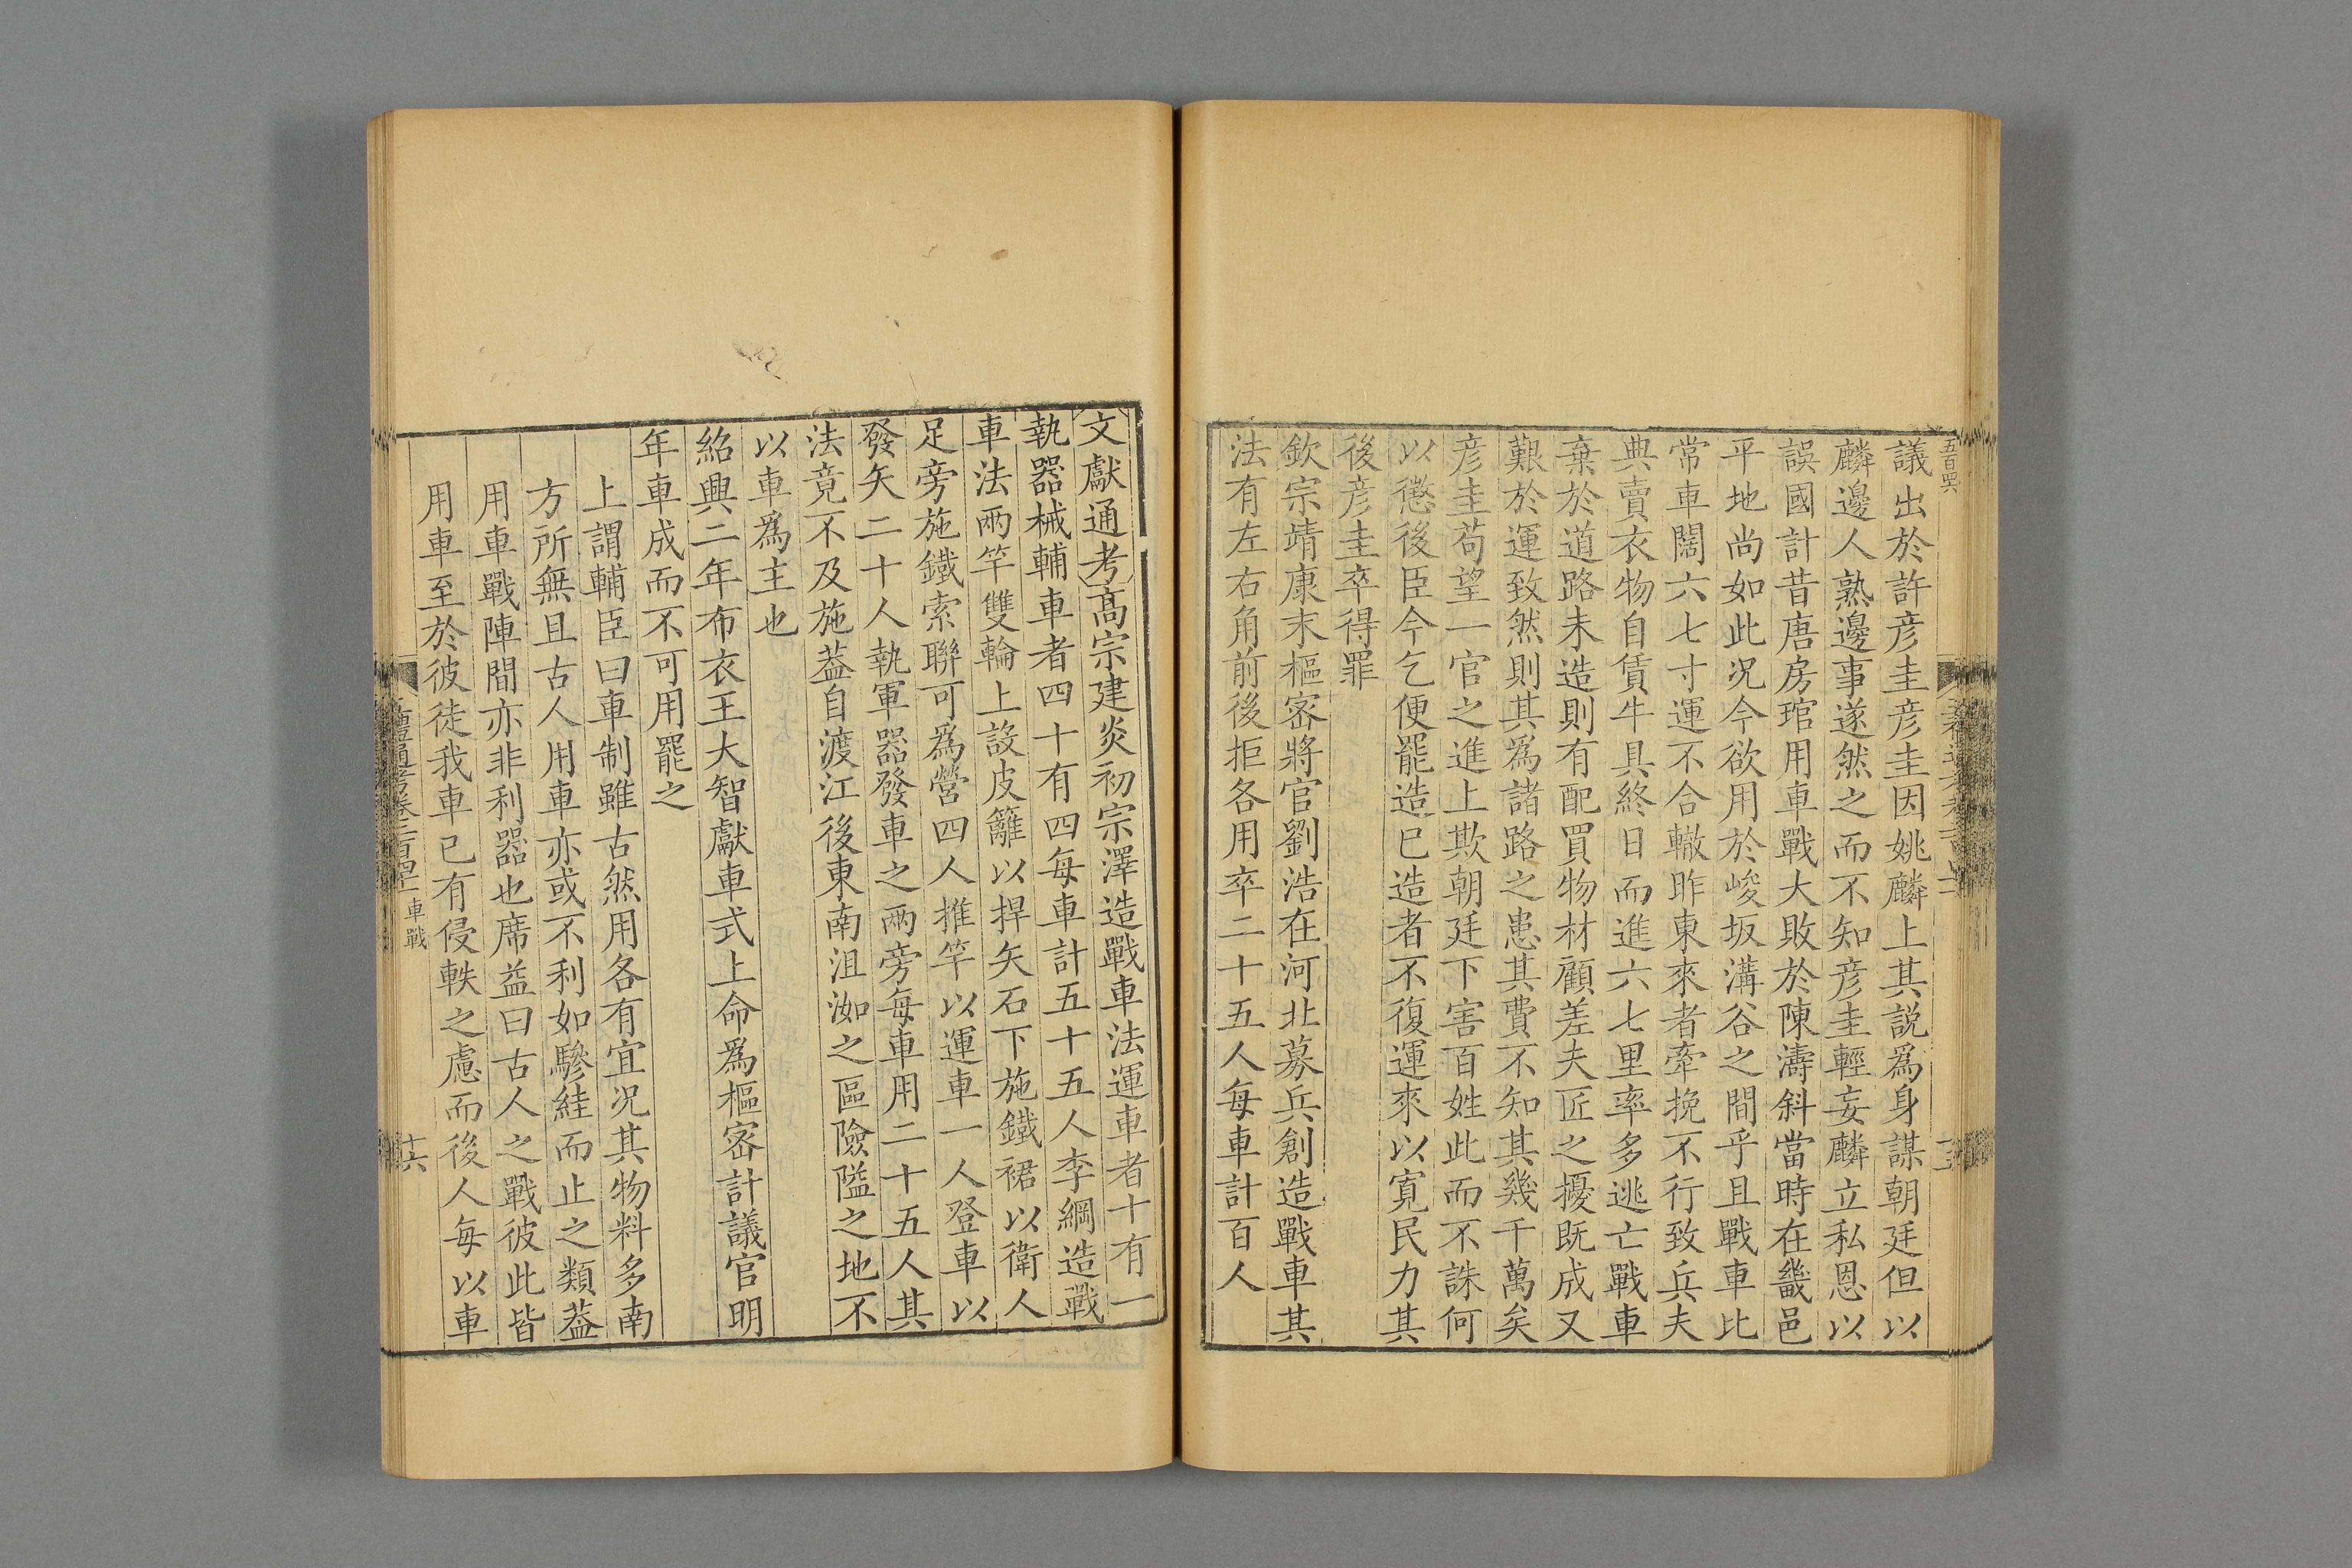 五百四六
議出於許彦圭彦圭因姚麟上其説爲身謀朝廷但以
麟邊人熟邊事遂然之而不知彦圭輕妄麟立私恩以
誤國計昔唐房琯用車戰大敗於陳濤斜當時在畿邑
平地尚如此況今欲用於峻坂溝谷之間乎且戰車比
常車闊六七寸運不合轍昨東來者牽挽不行致兵夫
典賣衣物自賃牛具終日而進六七里率多逃亡戰車
棄於道路未造則有配買物材顧差夫匠之擾既成又
艱於運致然則其爲諸路之患其費不知其幾千萬矣
彦圭苟望一官之進上欺朝廷下害百姓此而不誅何
以懲後臣今乞便罷造已造者不復運來以寬民力其
後彦圭卒得罪
欽宗靖康末樞密將官劉浩在河北募兵創造戰車其
法有左右角前後拒各用卒二十五人每車計百人
文獻通考高宗建炎初宗澤造戰車法運車者十有一
執器械輔車者四十有四每車計五十五人李綱造戰
車法兩竿雙輪上設皮籬以捍矢石下施鐵裙以衛人
足旁施鐵索聯可爲營四人推竿以運車一人登車以
發矢二十人執軍器發車之兩旁每車用二十五人其
法竟不及施葢自渡江後東南沮洳之區險隘之地不
以車爲主也
紹興二年布衣王大智獻車式上命爲樞密計議官明
年車成而不可用罷之
上謂輔臣曰車制雖古然用各有宜況其物料多南
方所無且古人用車亦或不利如驂絓而止之類葢
用車戰陣間亦非利器也席益曰古人之戰彼此皆
用車至於彼徒我車已有侵軼之慮而後人每以車
禮通考卷二百四十 車戰
十六